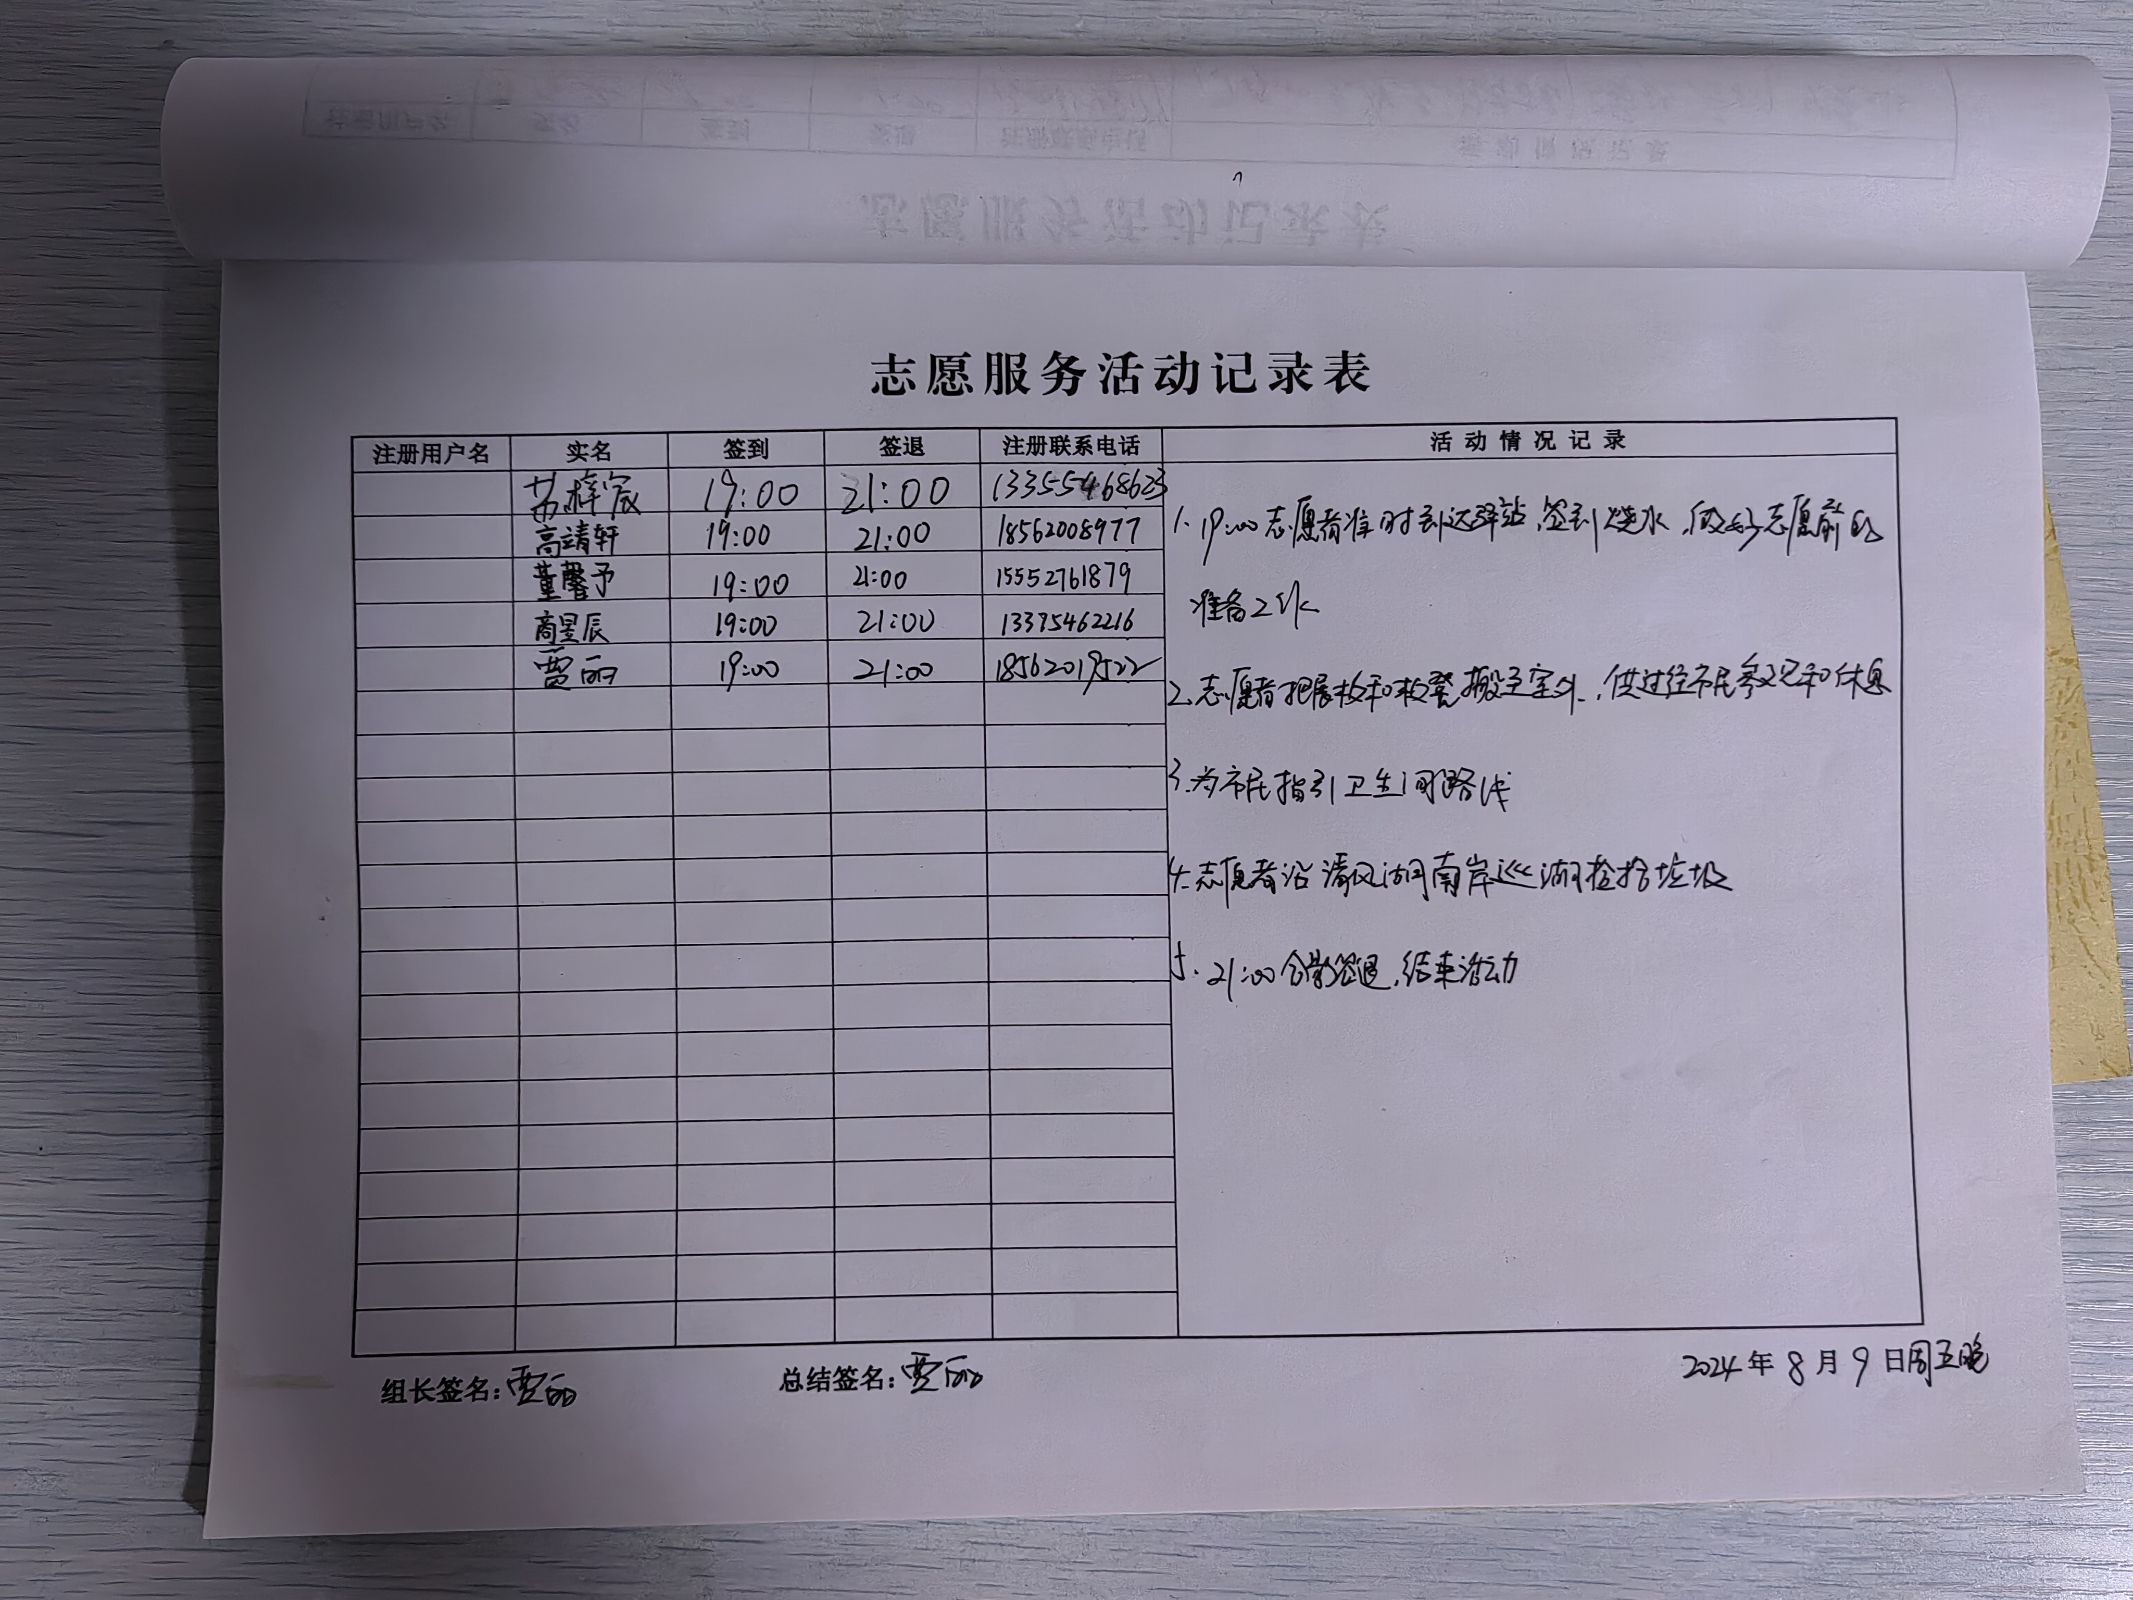 志愿服务活动记录表
注册用户名 实名 签到 签退 注册联系电话 活动情况记录
苏梓宸 19:00 21:00 13355468623
高靖轩 19:00 21:00 18562008977
董馨予 19:00 21:00 15552761879
商昱辰 19:00 21:00 13395462216
贾丽 19:00 21:00 18562019522
1. 19:00志愿者准时到达驿站,签到烧水,做好志愿前的
准备工作
2. 志愿者把展板和板凳搬至室外,供过经市民参观和休息
3. 为市民指引卫生间路线
4. 志愿者沿清风湖南岸巡湖捡拾垃圾
5. 21:00合影签退,结束活动
组长签名:贾丽 总结签名:贾丽 2024年8月9日周五晚